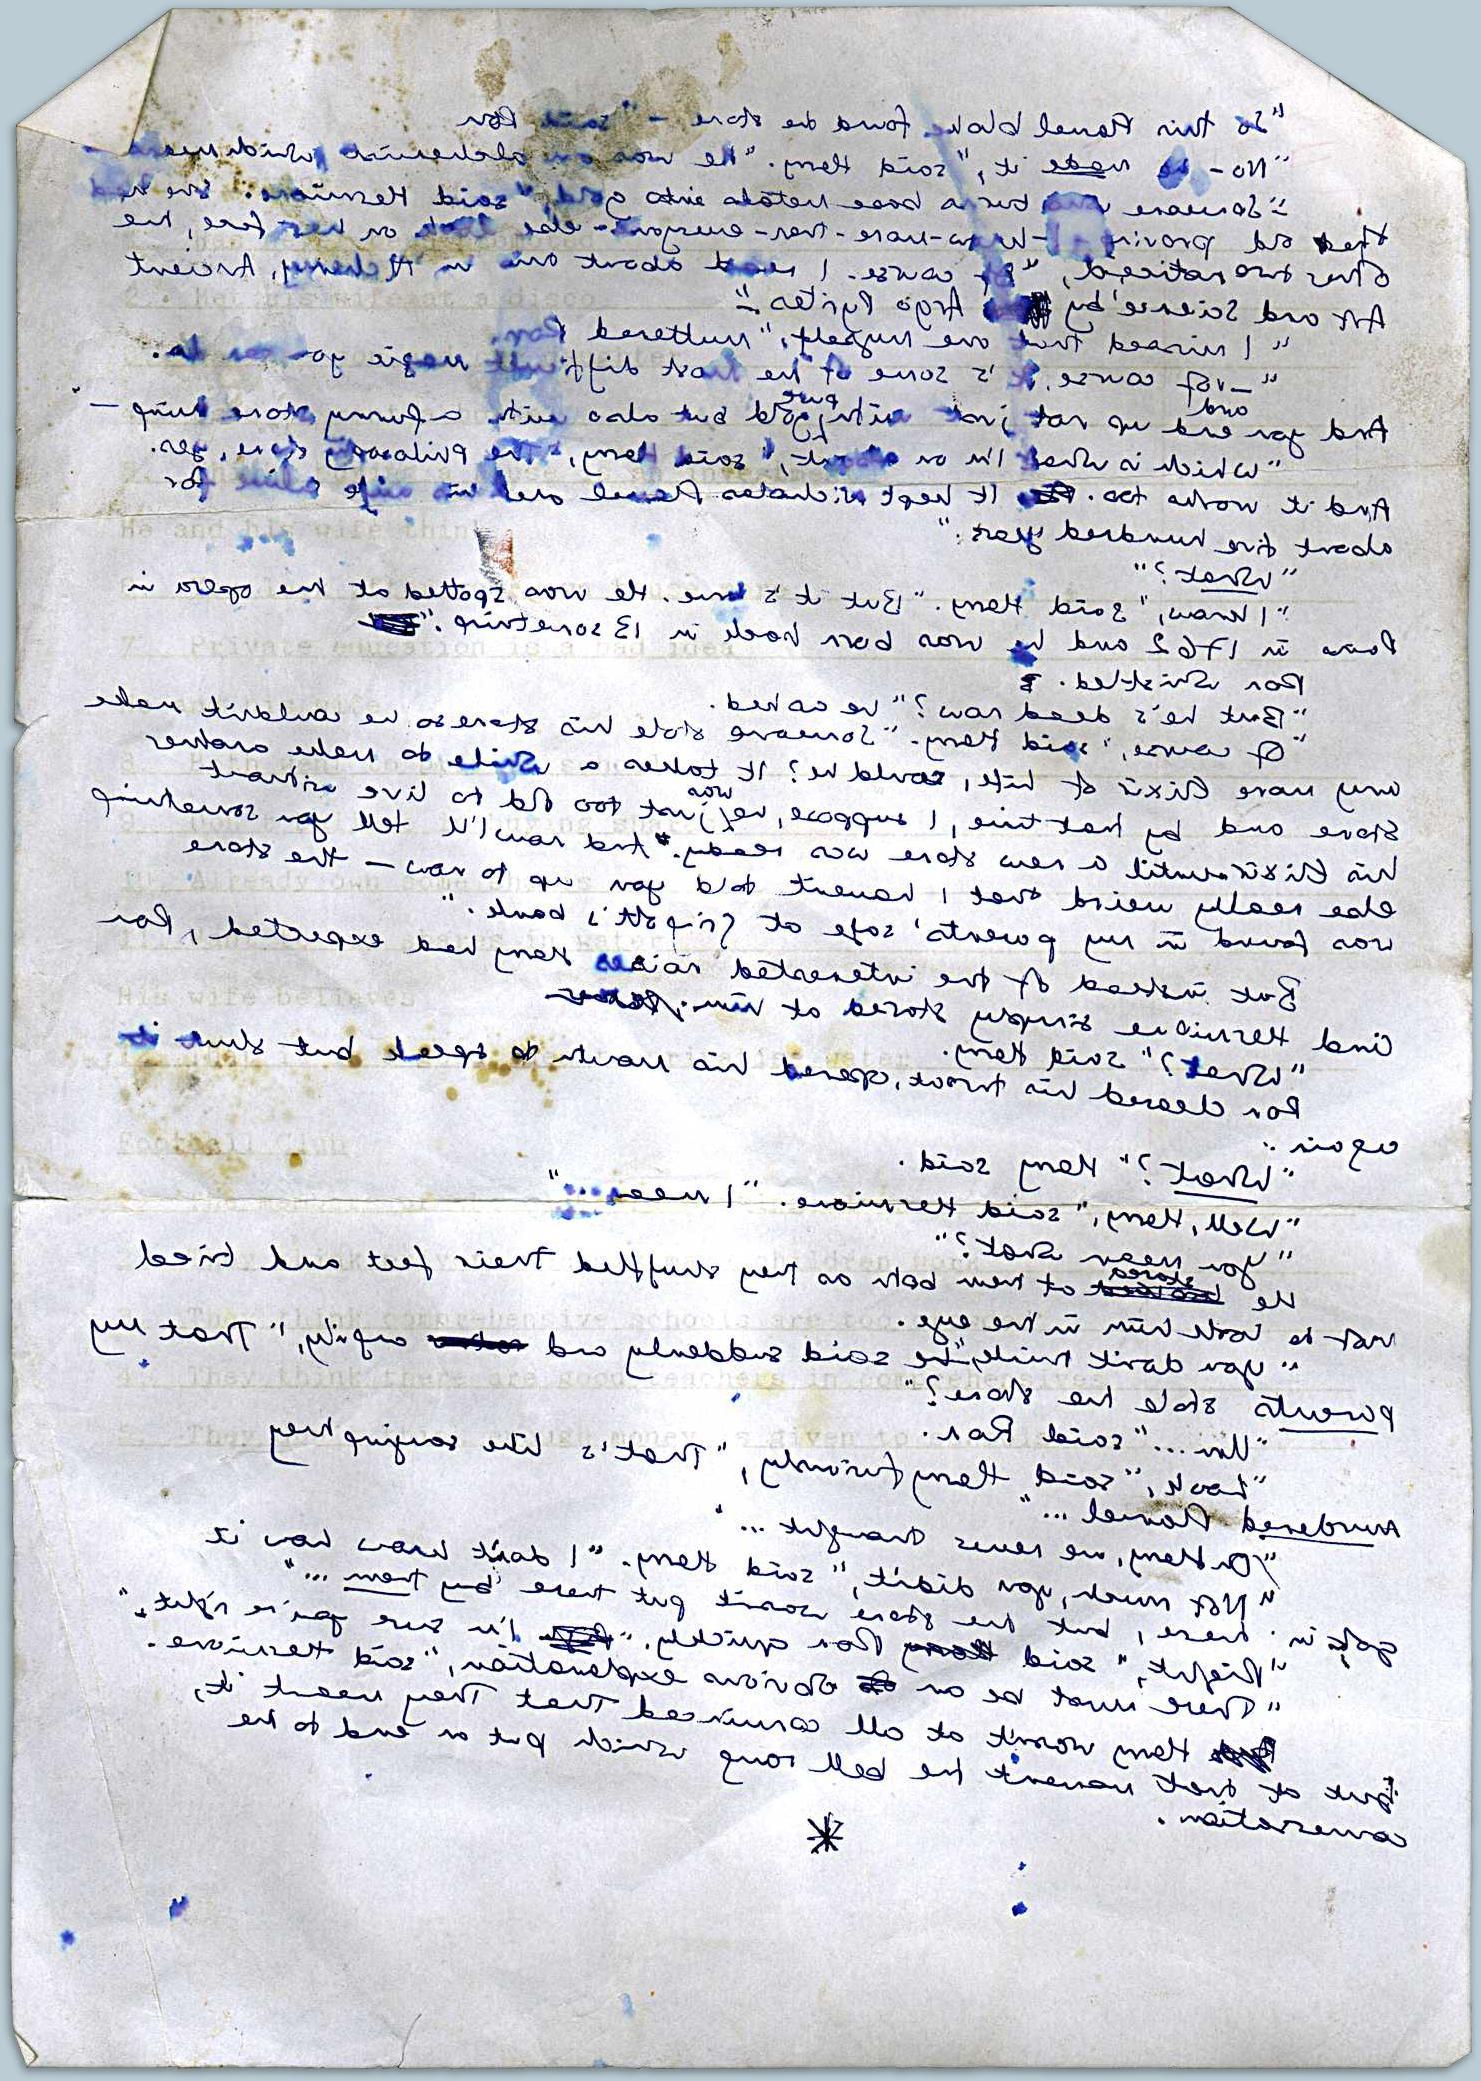 "So this Flamel bloke found the stone -" said Ron
"No - he made it," said Harry. "He was an alchemist which means -
"Someone who turns base metals into gold," said Hermione. She had
that old proving - -knows-more-than-everyone-else look on her face, the
other two noticed, "Of course. I read about one in 'Alchemy, Ancient
Art and Science', by Argo Pyrites -"
"I missed that one myself," muttered Ron.
"- of course, it's some of the most difficult magic you can do.
And you end up not just with pure gold but also with a funny stone thing -"
and
"Which is what I'm on about," said Harry, "The Philosophy Stone, yes.
And it works too. It kept Nicholas Flamel and his wife alive for
about five hundred years."
"What?"
"I know," said Harry. "But it's true. He was spotted at the opera in
Paris in 1762 and he was born back in 13 something."
Private education is a bad idea
Ron whistled.
"But he's dead now?" he asked.
"Of course," said Harry. "Someone stole his stone so he couldn't make
any more Elixir of Life, could he? It takes a while to make another
stone and by that time, I suppose, he was just too old to live without
his Elixir until a new stone was ready. And now I'll tell you something
else really weird that I haven't told you up to now - the stone
was found in my parents' safe at Gringott's bank."
But instead of the interested noises Harry had expected, Ron
and Hermione simply stared at him.
His wife believes
"What?" said Harry.
Ron cleared his throat, opened his mouth to speak but shut it
again.
Football Club
"What?" Harry said.
"Well, Harry," said Hermione. "I mean ..."
"You mean what?"
He stared at them both as they shuffled their feet and tried
not to look him in the eye.
They think comprehensive schools are too
"You don't think," he said suddenly and angrily, "That my
4. They think there are good teachers in comprehensives
parents stole the stone?"
"Um ..." said Ron.
"Look," said Harry furiously, "That's like saying they
murdered Flamel ..."
"Oh Harry, we never thought ..."
"Not much, you didn't," said Harry. "I don't know how it
got in there, but the stone wasn't put there by them ..."
"Right," said Ron quickly. "I'm sure you're right."
"There must be an obvious explanation," said Hermione.
Harry wasn't at all convinced that they meant it,
but at that moment the bell rang which put an end to the
conversation.